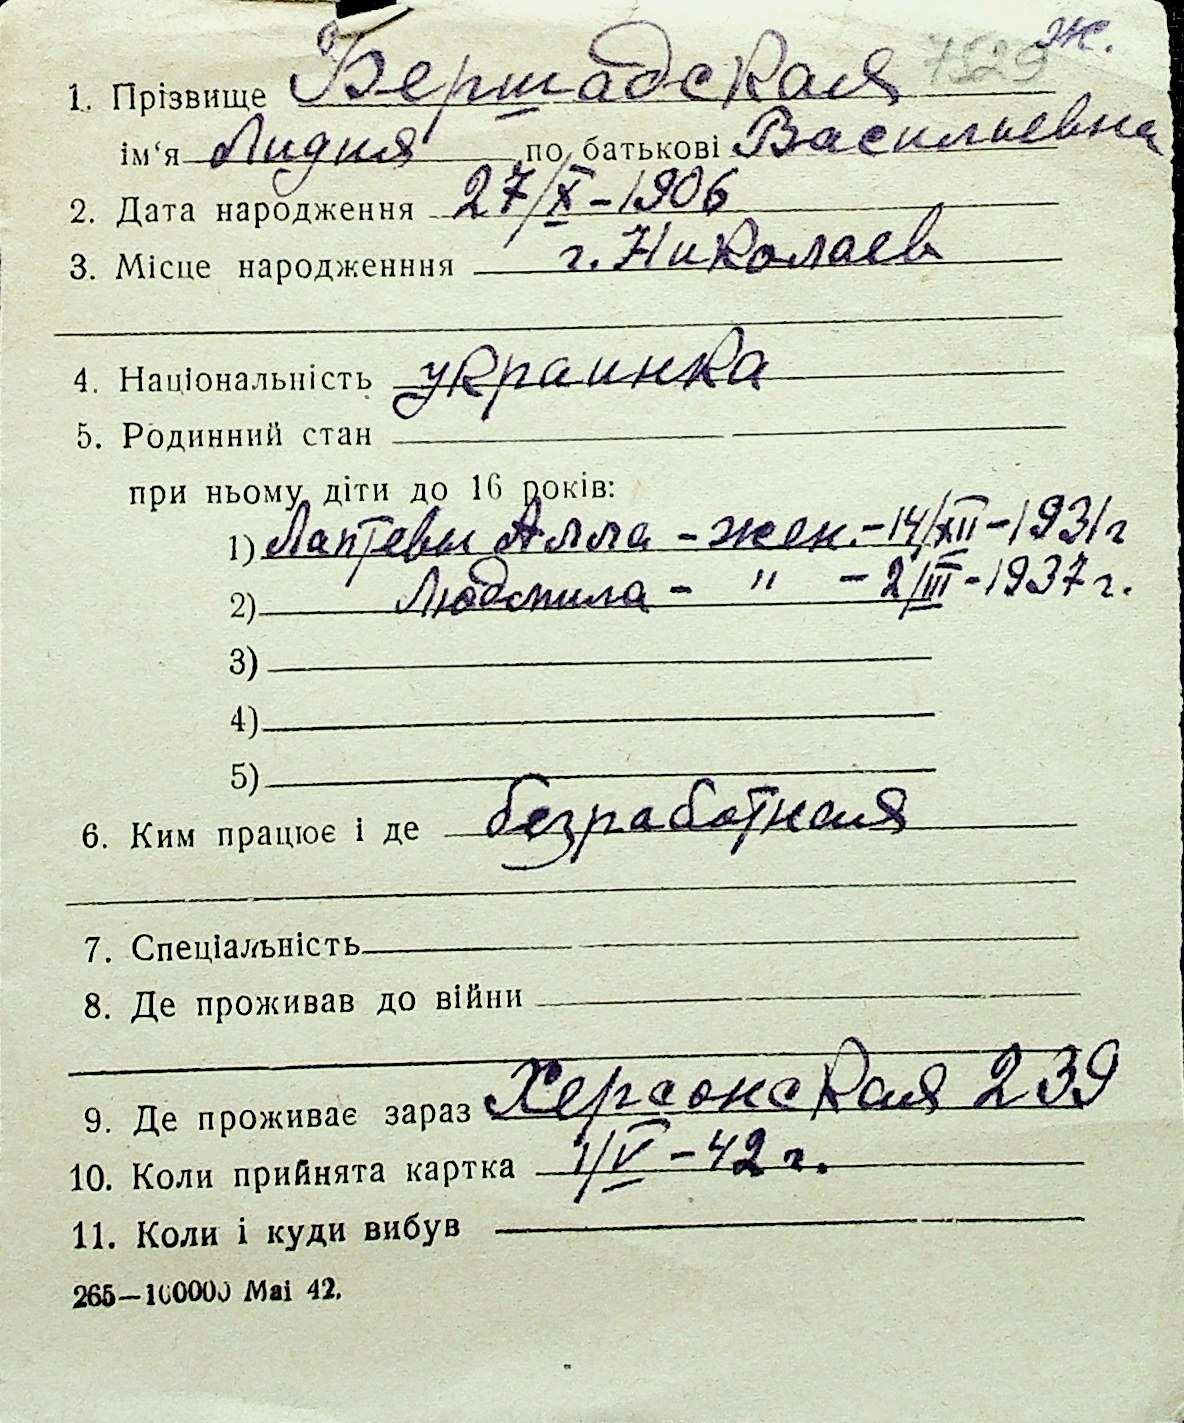 7529 ж.
1. Прізвище Бершадская
ім‘я Лидия по батькові Васильевна
2. Дата народження 27/X-1906
3. Місце народженння г. Николаев
4. Національність украинка
5. Родинний стан
при ньому діти до 16 років:
1) Лаптевы Алла - жен. - 14/XII - 1931 г
2) Людмила - " - 2/III - 1937 г.
3)
4)
5)
6. Ким працює і де безработная
7. Спеціальність
8. Де проживав до війни
9. Де проживає зараз Херсонская 239
10. Коли прийнята картка 1/V - 42 г.
11. Коли і куди вибув
265—100000 Mai 42.